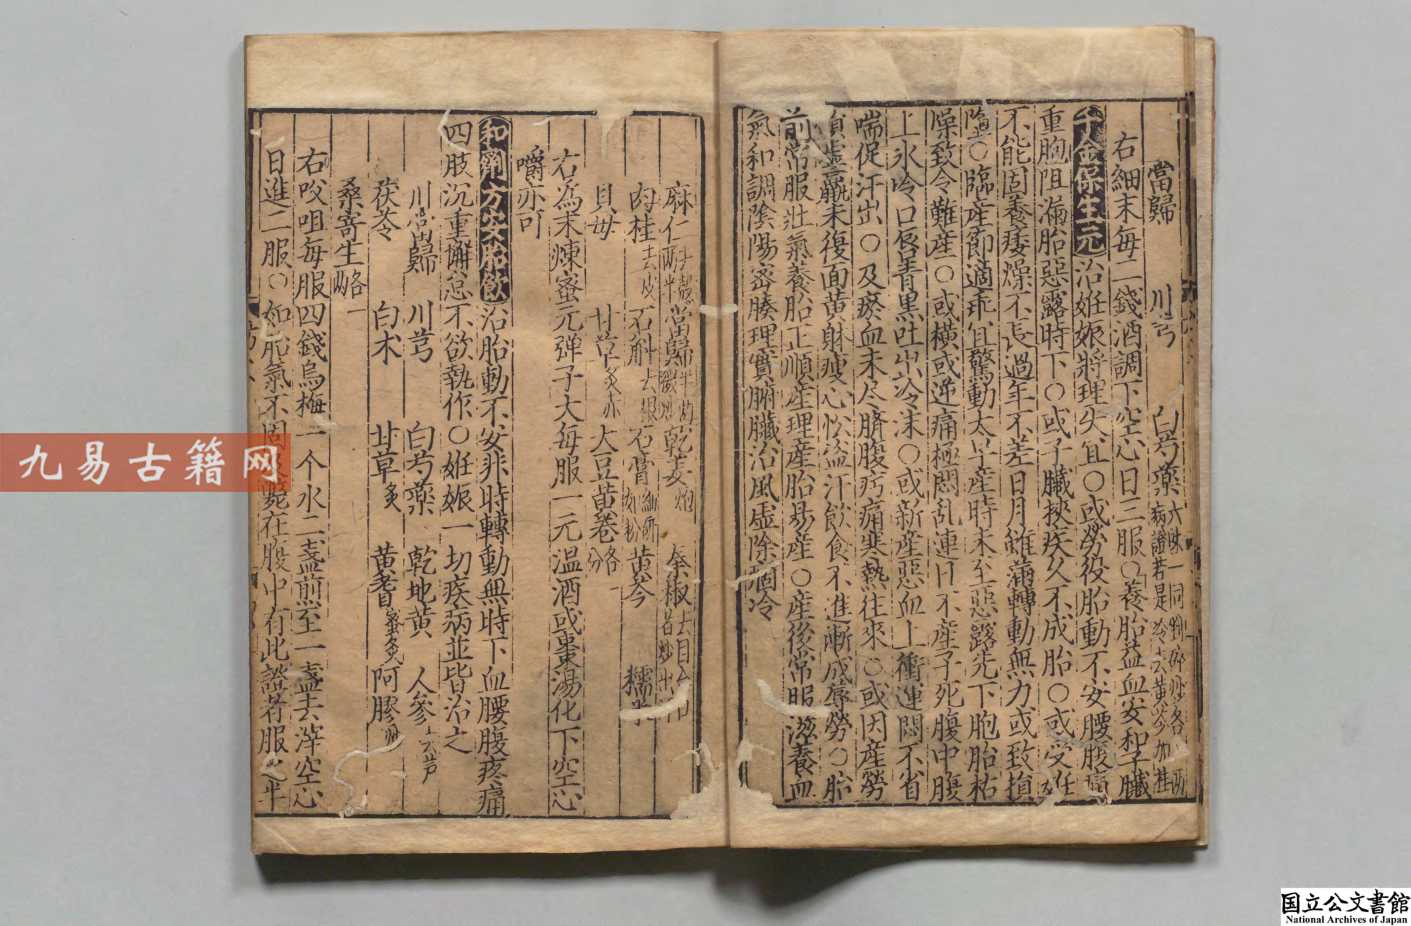 當歸 川芎 白芍藥 六味一同 病證若是冷去黃芩加桂
右細末每二錢酒調下空心日三服○養胎益血安和子臟
千金保生元 治姙娠將理失宜○或勞役胎動不安腰腹痛
重胞阻漏胎惡露時下○或子臟挾疾久不成胎○或受姙
不能固養痿燥不長過年不差日月雖滿轉動無力或致損
墮○臨產節適乖宜驚動太早產時未至惡露先下胞胎枯
燥致令難產○或橫或逆痛極悶亂連日不產子死腹中腹
上氷冷口唇青黑吐出冷沫○或新產惡血上衝運悶不省
喘促汗出○及瘀血未尽臍腹㽲痛寒熱往來○或因產勞
損虛羸未復面黃身瘦心忪盜汗飲食不進漸成蓐勞○胎
前常服壯氣養胎正順產理產胎易產○產後常服滋養血
氣和調陰陽密腠理實腑臟治風虛除痼冷
麻仁 當歸 乾姜炮 秦椒去目
肉桂去皮 石斛去根 石膏細研 黃芩 糯米
貝毋 甘草炙 大豆黃卷
右為末煉蜜元弾子大每服一元温酒或棗湯化下空心
嚼亦可
和劑方安胎飲 治胎動不安非時轉動無時下血腰腹疼痛
四肢沉重懈怠不欲執作○姙娠一切疾病並皆治之
川當歸 川芎 白芍藥 乾地黃 人參去芦
茯苓 白术 甘草炙 黃耆蜜炙 阿膠
桑寄生
右㕮咀每服四錢烏梅一个水二盞煎至一盞去滓空心
日進二服○如胎氣不固 在腹中有此證者服之
九易古籍网
国立公文書館
National Archives of Japan